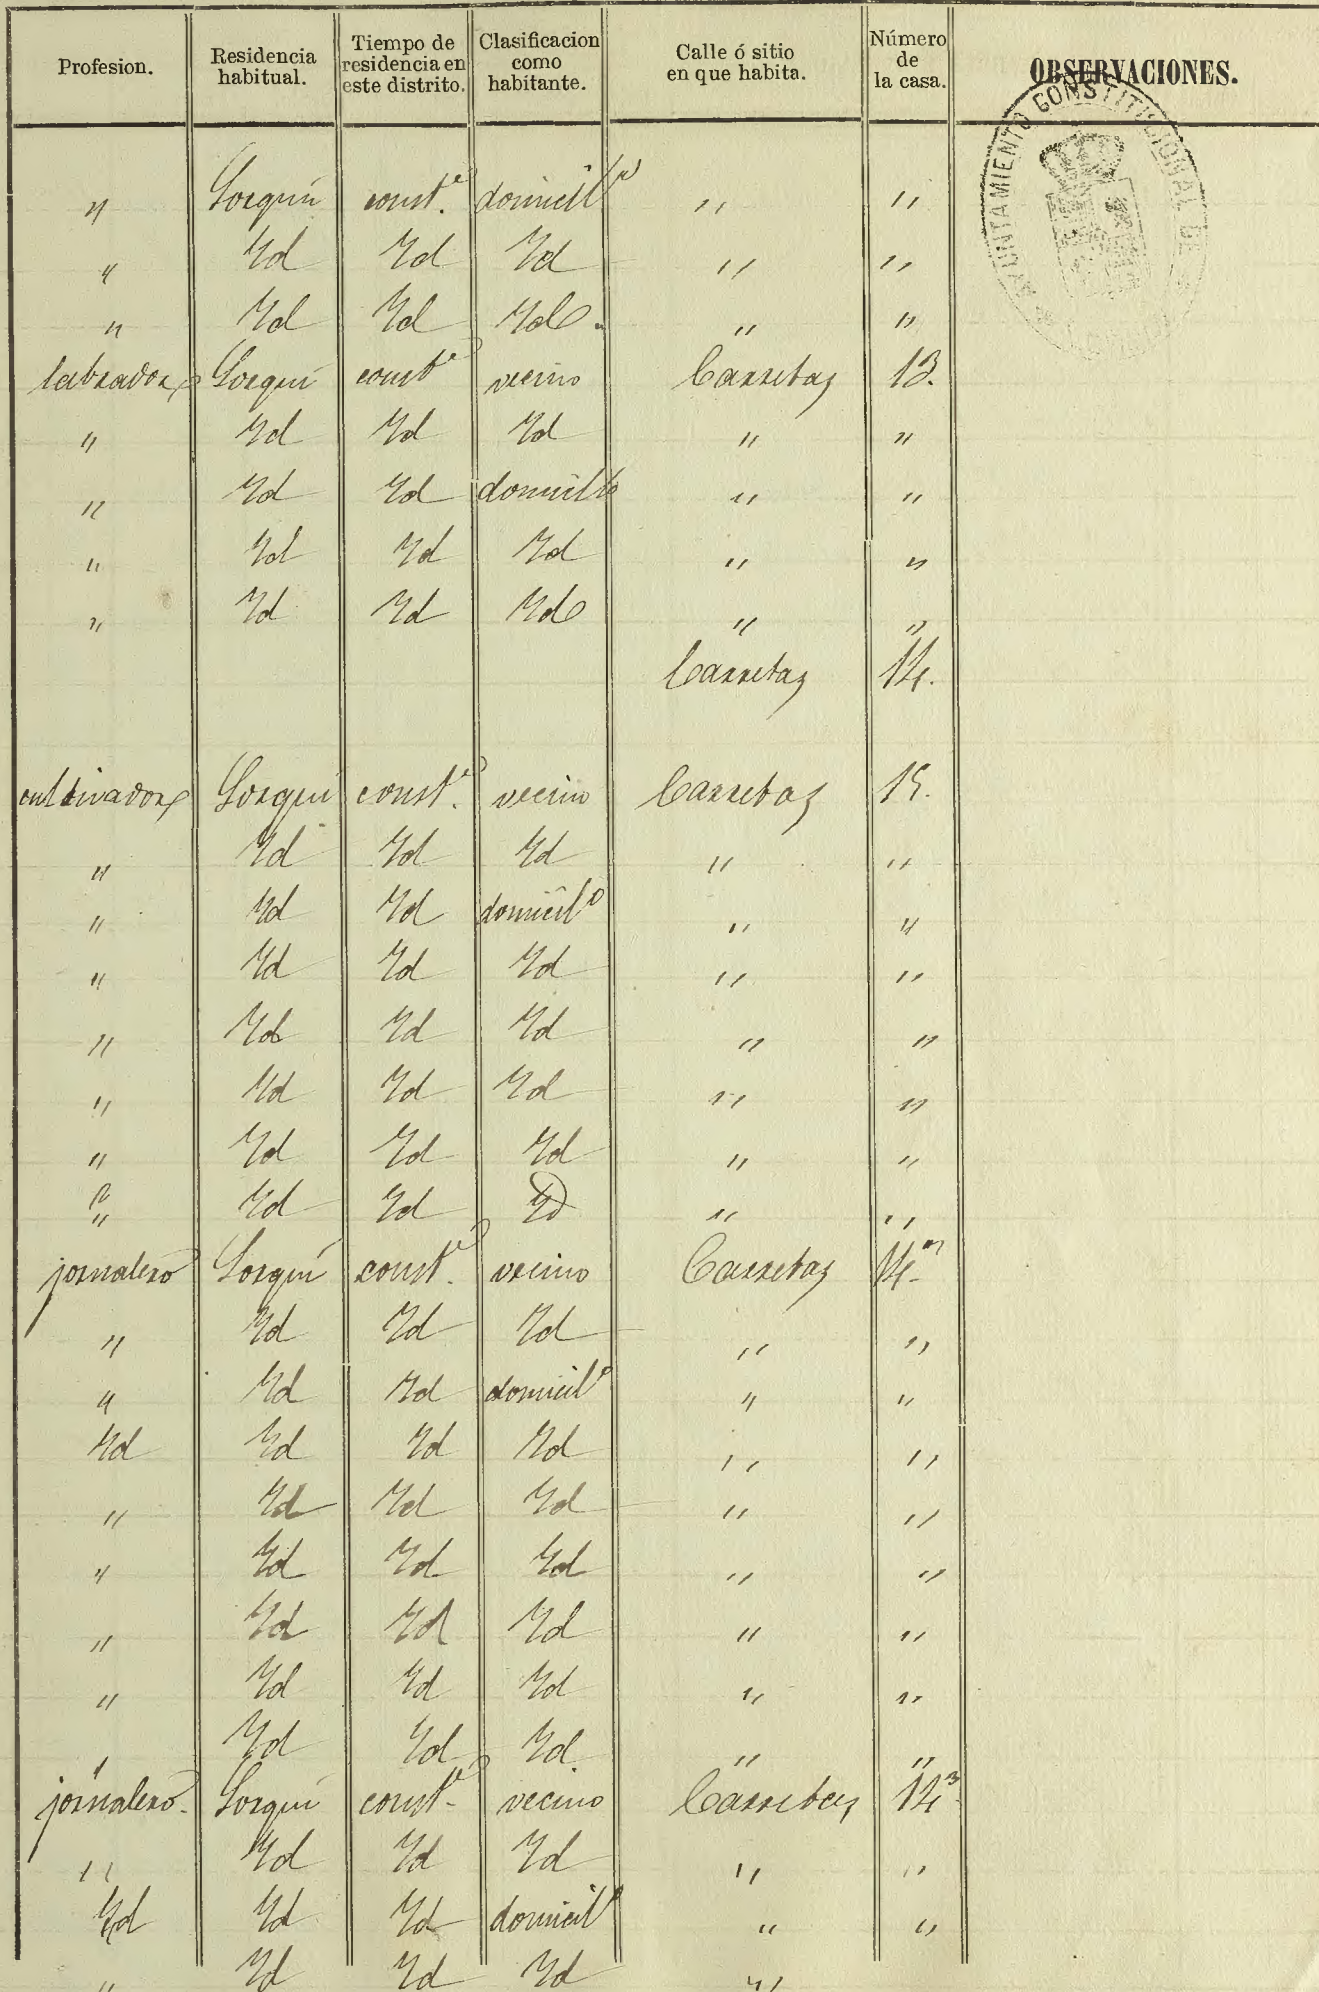 Profesion. Residencia habitual. Tiempo de residencia en este distrito. Clasificacion como habitante. Calle ó sitio en que habita. Número de la casa. OBSERVACIONES.
AYUNTAMIENTO CONSTITUCIONAL DE
" Lorquí const.e domicil.o " "
" Yd Yd Yd " "
" Yd Yd Yd " "
labrador Lorquí const.e vecino Carretas 13.
" Yd Yd Yd " "
" Yd Yd domicilo " "
" Yd Yd Yd " "
" Yd Yd Yd " "
Carretas 14.
cultivador Lorquí const.e vecino Carretas 15.
" Yd Yd Yd " "
" Yd Yd domicil.o " "
" Yd Yd Yd " "
" Yd Yd Yd " "
" Yd Yd Yd " "
" Yd Yd Yd " "
" Yd Yd Yd " "
jornalero Lorquí const.e vecino Carretas 14.
" Yd Yd Yd " "
" Yd Yd domicil.o " "
Yd Yd Yd Yd " "
" Yd Yd Yd " "
" Yd Yd Yd " "
" Yd Yd Yd " "
" Yd Yd Yd " "
" Yd Yd Yd " "
jornalero. Lorquí const.e vecino Carretas 14.3
" Yd Yd Yd " "
Yd Yd Yd domicil.o " "
" Yd Yd Yd "